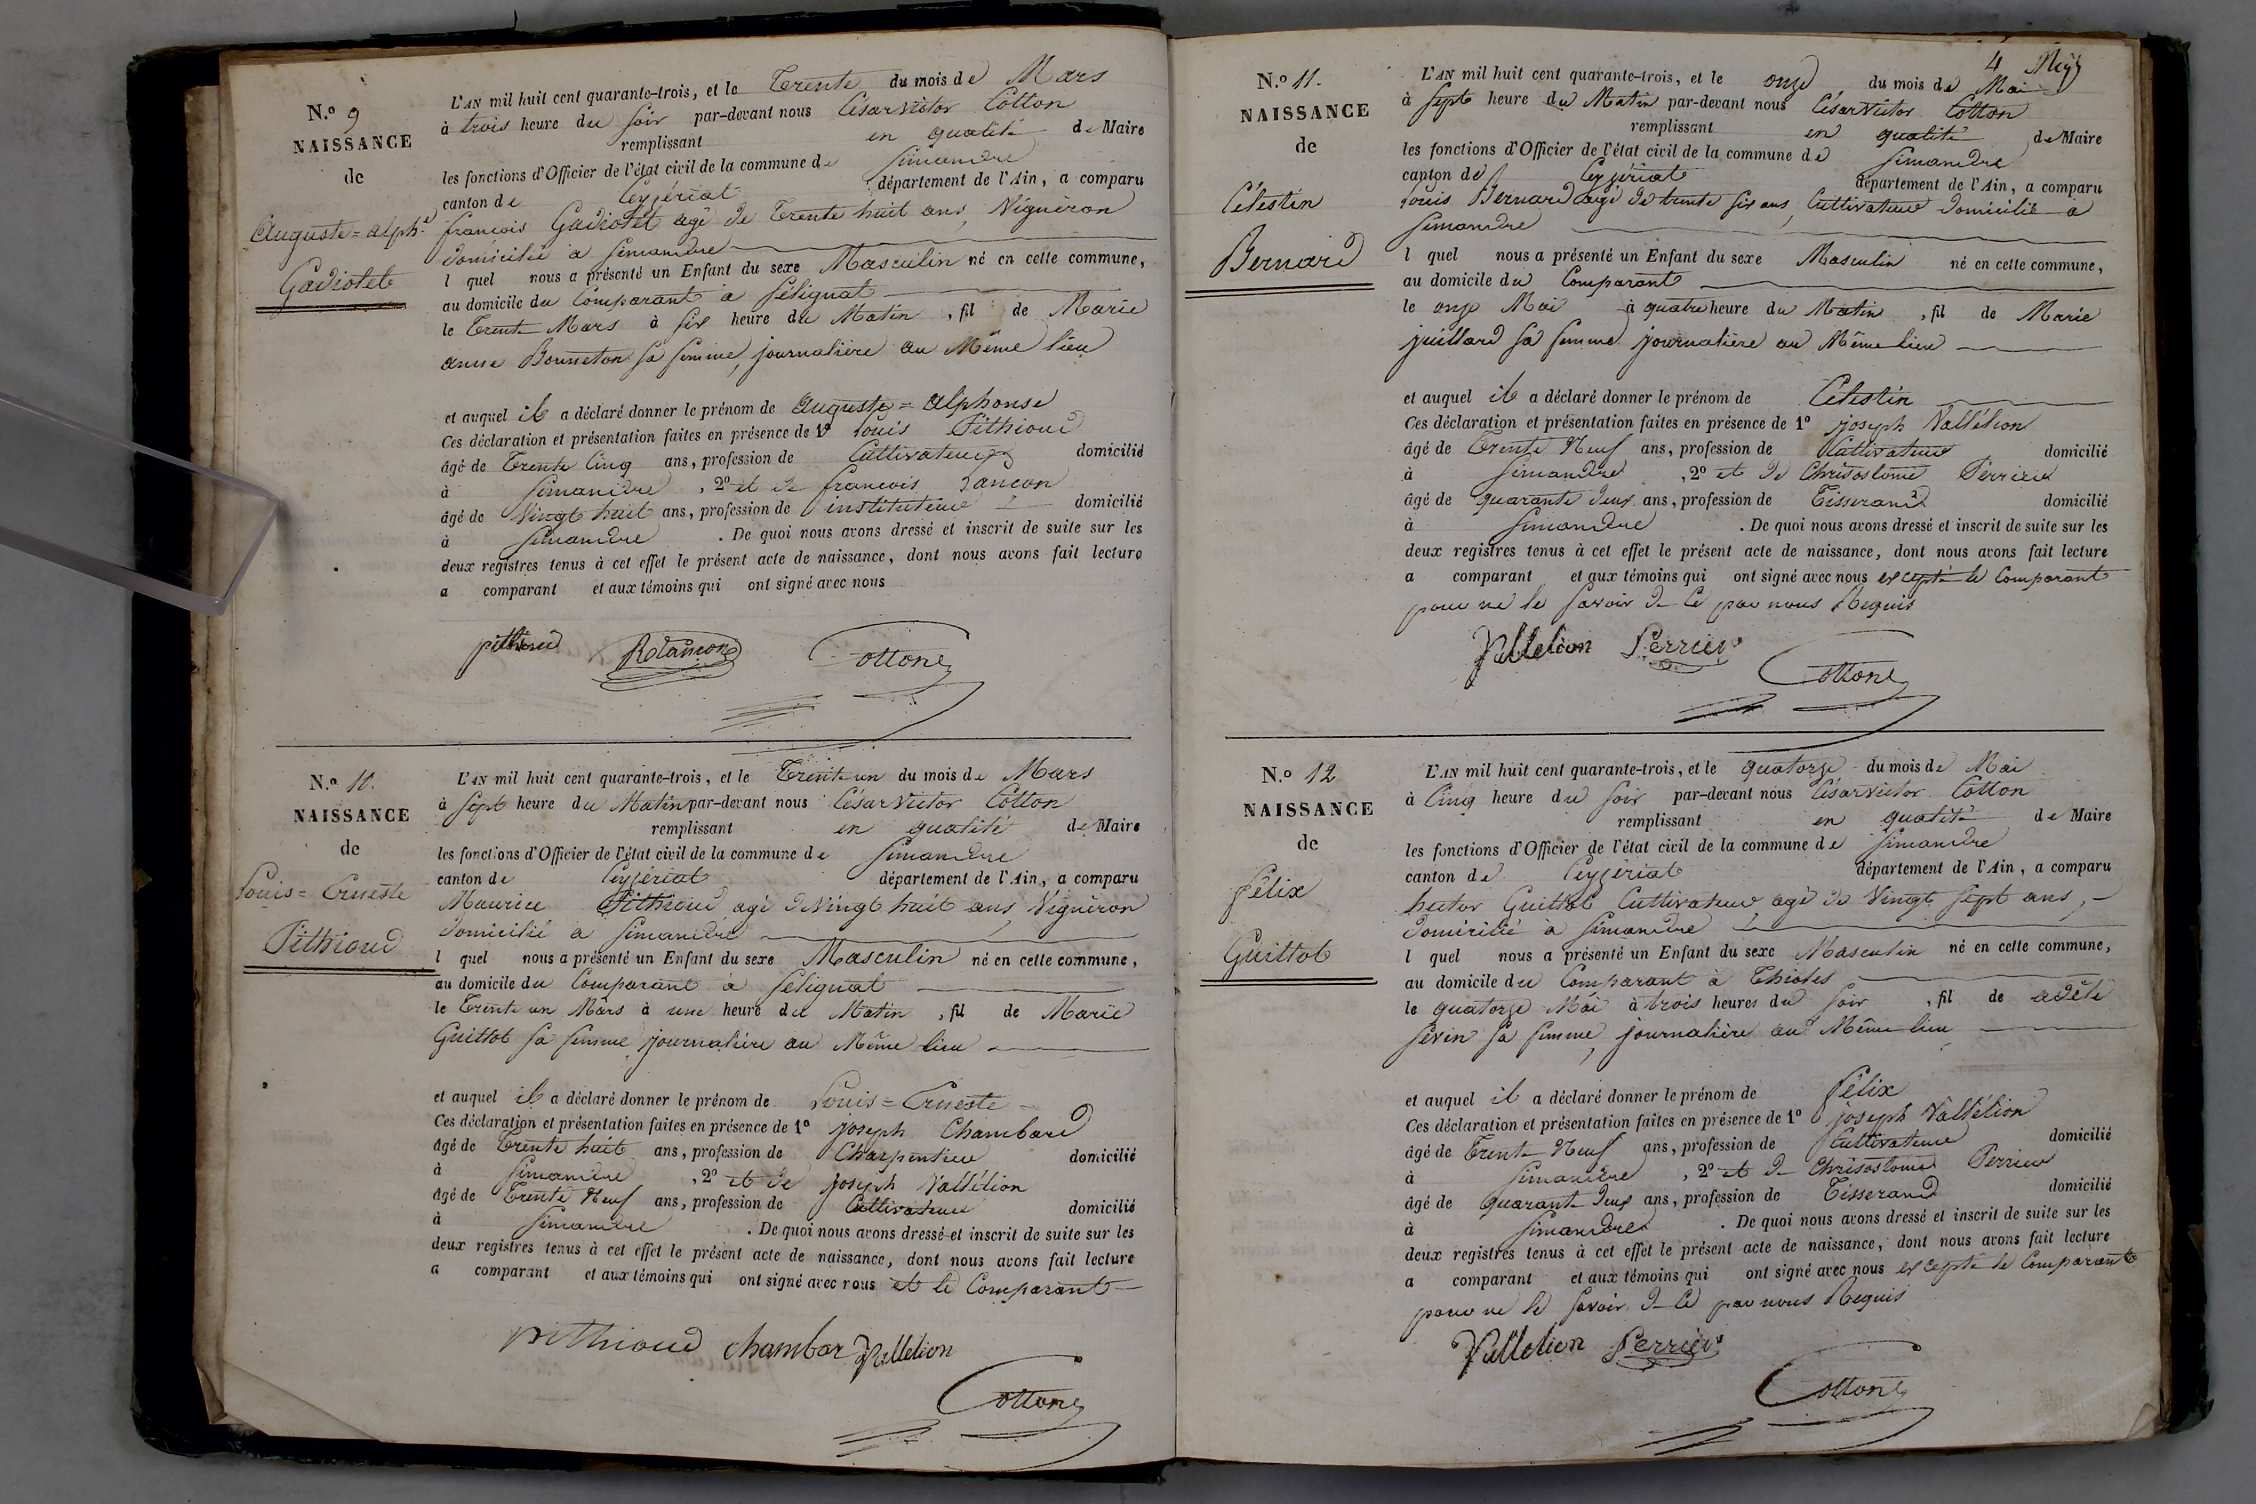 N.º 9
NAISSANCE
de
Auguste=alph.e
Gadiolet
L'AN mil huit cent quarante-trois, et le Trente du mois de Mars
à trois heure du soir par-devant nous César Victor Cotton
remplissant en qualité de Maire
les fonctions d'Officier de l'état civil de la commune de Simandre
canton de Ceyzériat département de l'Ain, a comparu
francois Gadiolet agé de Trente huit ans, Vigneron
domicilié à Simandre
l quel nous a présenté un Enfant du sexe Masculin né en cette commune,
au domicile du Comparant à Sélignat
le Trente Mars à six heure du Matin, fil de Marie
anne Bonneton sa femme, journalière au Même lieu
et auquel il a déclaré donner le prénom de auguste=alphonse
Ces déclaration et présentation faites en présence de 1º louis Pithioud
âgé de Trente Cinq ans, profession de Cultivateur domicilié
à Simandre, 2º et de francois Lancon
âgé de Vingt huit ans, profession de instituteur domicilié
à Simandre. De quoi nous avons dressé et inscrit de suite sur les
deux registres tenus à cet effet le présent acte de naissance, dont nous avons fait lecture
a comparant et aux témoins qui ont signé avec nous
pithioud Cotton
N.º 10.
NAISSANCE
de
Louis=Erneste
Pithioud
L'AN mil huit cent quarante-trois, et le Trente un du mois de Mars
à sept heure du Matin par-devant nous César Victor Cotton
remplissant en qualité de Maire
les fonctions d'Officier de l'état civil de la commune de Simandre
canton de Ceyzériat département de l'Ain, a comparu
Maurice Pithioud agé de Vingt huit ans, Vigneron
domicilié à Simandre
l quel nous a présenté un Enfant du sexe Masculin né en cette commune,
au domicile du Comparant à Sélignat
le Trente un Mars à une heure du Matin, fil de Marie
Guillot sa femme journalière au Même lieu
et auquel il a déclaré donner le prénom de Louis=Erneste
Ces déclaration et présentation faites en présence de 1º joseph Chambard
âgé de Trente huit ans, profession de Charpentier domicilié
à Simandre, 2º et de joseph Vallélion
âgé de Trente Neuf ans, profession de Cultivateur domicilié
à Simandre. De quoi nous avons dressé et inscrit de suite sur les
deux registres tenus à cet effet le présent acte de naissance, dont nous avons fait lecture
a comparant et aux témoins qui ont signé avec nous et le Comparant
pithioud chambar Vallelion
Cotton
4
N.º 11.
NAISSANCE
de
Célestin
Bernard
L'AN mil huit cent quarante-trois, et le onze du mois de Mai
à sept heure du Matin par-devant nous César Victor Cotton
remplissant en qualité de Maire
les fonctions d'Officier de l'état civil de la commune de Simandre
canton de Ceyzériat département de l'Ain, a comparu
louis Bernard agé de trente six ans, Cultivateur domicilié à
Simandre
l quel nous a présenté un Enfant du sexe Masculin né en cette commune,
au domicile du Comparant
le onze Mai à quatre heure du Matin, fil de Marie
juillard sa femme journalière au Même lieu
et auquel il a déclaré donner le prénom de Célestin
Ces déclaration et présentation faites en présence de 1º joseph Vallélion
âgé de Trente Neuf ans, profession de Cultivateur domicilié
à Simandre, 2º et de Chrisostome Perrier
âgé de quarante deux ans, profession de Tisserand domicilié
à Simandre. De quoi nous avons dressé et inscrit de suite sur les
deux registres tenus à cet effet le présent acte de naissance, dont nous avons fait lecture
a comparant et aux témoins qui ont signé avec nous excepté le Comparant
pour ne le savoir de ce par nous Requis
Vallelion Perrier
Cotton
N.º 12
NAISSANCE
de
félix
Guillot
L'AN mil huit cent quarante-trois, et le quatorze du mois de Mai
à Cinq heure du soir par-devant nous César Victor Cotton
remplissant en qualité de Maire
les fonctions d'Officier de l'état civil de la commune de Simandre
canton de Ceyzériat département de l'Ain, a comparu
hector Guillot Cultivateur agé de Vingt sept ans,
domicilié à Simandre
l quel nous a présenté un Enfant du sexe Masculin né en cette commune,
au domicile du Comparant à Thioles
le quatorze Mai à trois heures du soir, fil de adèle
sévin sa femme, journalière au Même lieu
et auquel il a déclaré donner le prénom de félix
Ces déclaration et présentation faites en présence de 1º joseph Vallélion
âgé de Trente Neuf ans, profession de Cultivateur domicilié
à Simandre, 2º et de Chrisostome Perrier
âgé de quarante deux ans, profession de Tisserand domicilié
à Simandre. De quoi nous avons dressé et inscrit de suite sur les
deux registres tenus à cet effet le présent acte de naissance, dont nous avons fait lecture
a comparant et aux témoins qui ont signé avec nous excepté le Comparant
pour ne le savoir de ce par nous Requis
Vallelion Perrier
Cotton